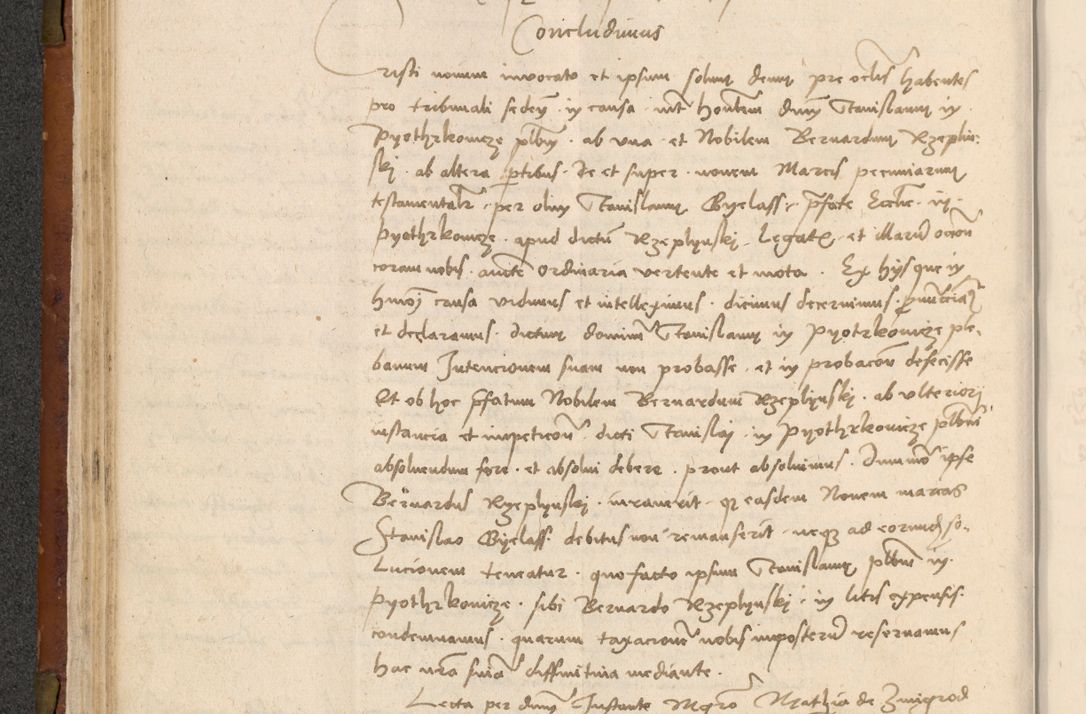 Concludimus
Cristi nomine invocato et ipsum solum deum pre oclis habentes
pro tribunali seden in causa int honbilem dnum Stanislaum in
Pyothrkowicze plbnum ab una et Nobilem Bernardum Rzeplin
ski ab altera ptibus de et super novem Marcis pecuniarum
testamentalr per olim Stanislaum Gyelass pfate Ecclie in
Pyothrkowicze apud dictum Rzeplynski Legat et illarum occion
coram nobis aucte ordinaria vertente et mota Ex hys que in
hmoi causa vidimus et intelleximus dicimus decernimus pnuncia
et declaramus dictum dominum Stanislaum in Pyotrkowicze ple
banum Intencionem suam non probasse et in probacone defecisse
Et ob hoc pfatum Nobilem Bernardum Rzeplynski ab ulteriori
instancia et impeticone dicti Stanislai in Pyothrkowicze plbni
absolvendum fore et absolvi debere prout absolvimus Dummo ipse
Bernardus Rzeplynski iuraverit q easdem Novem marcas
Stanislao Gyelass debitus non remanserit neq ad eorund so
Lucionem teneatur quo facto ipsum Stanislaum plbnum in
Pyothrkowicze sibi Bernardo Rzeplynski in litis expensis
condemnamus quarum taxacionem nobis imposterum reservamus
hac nra snia diffinitiva mediante
Lecta per dnum Instante Mgro Mathia de Zmigrod